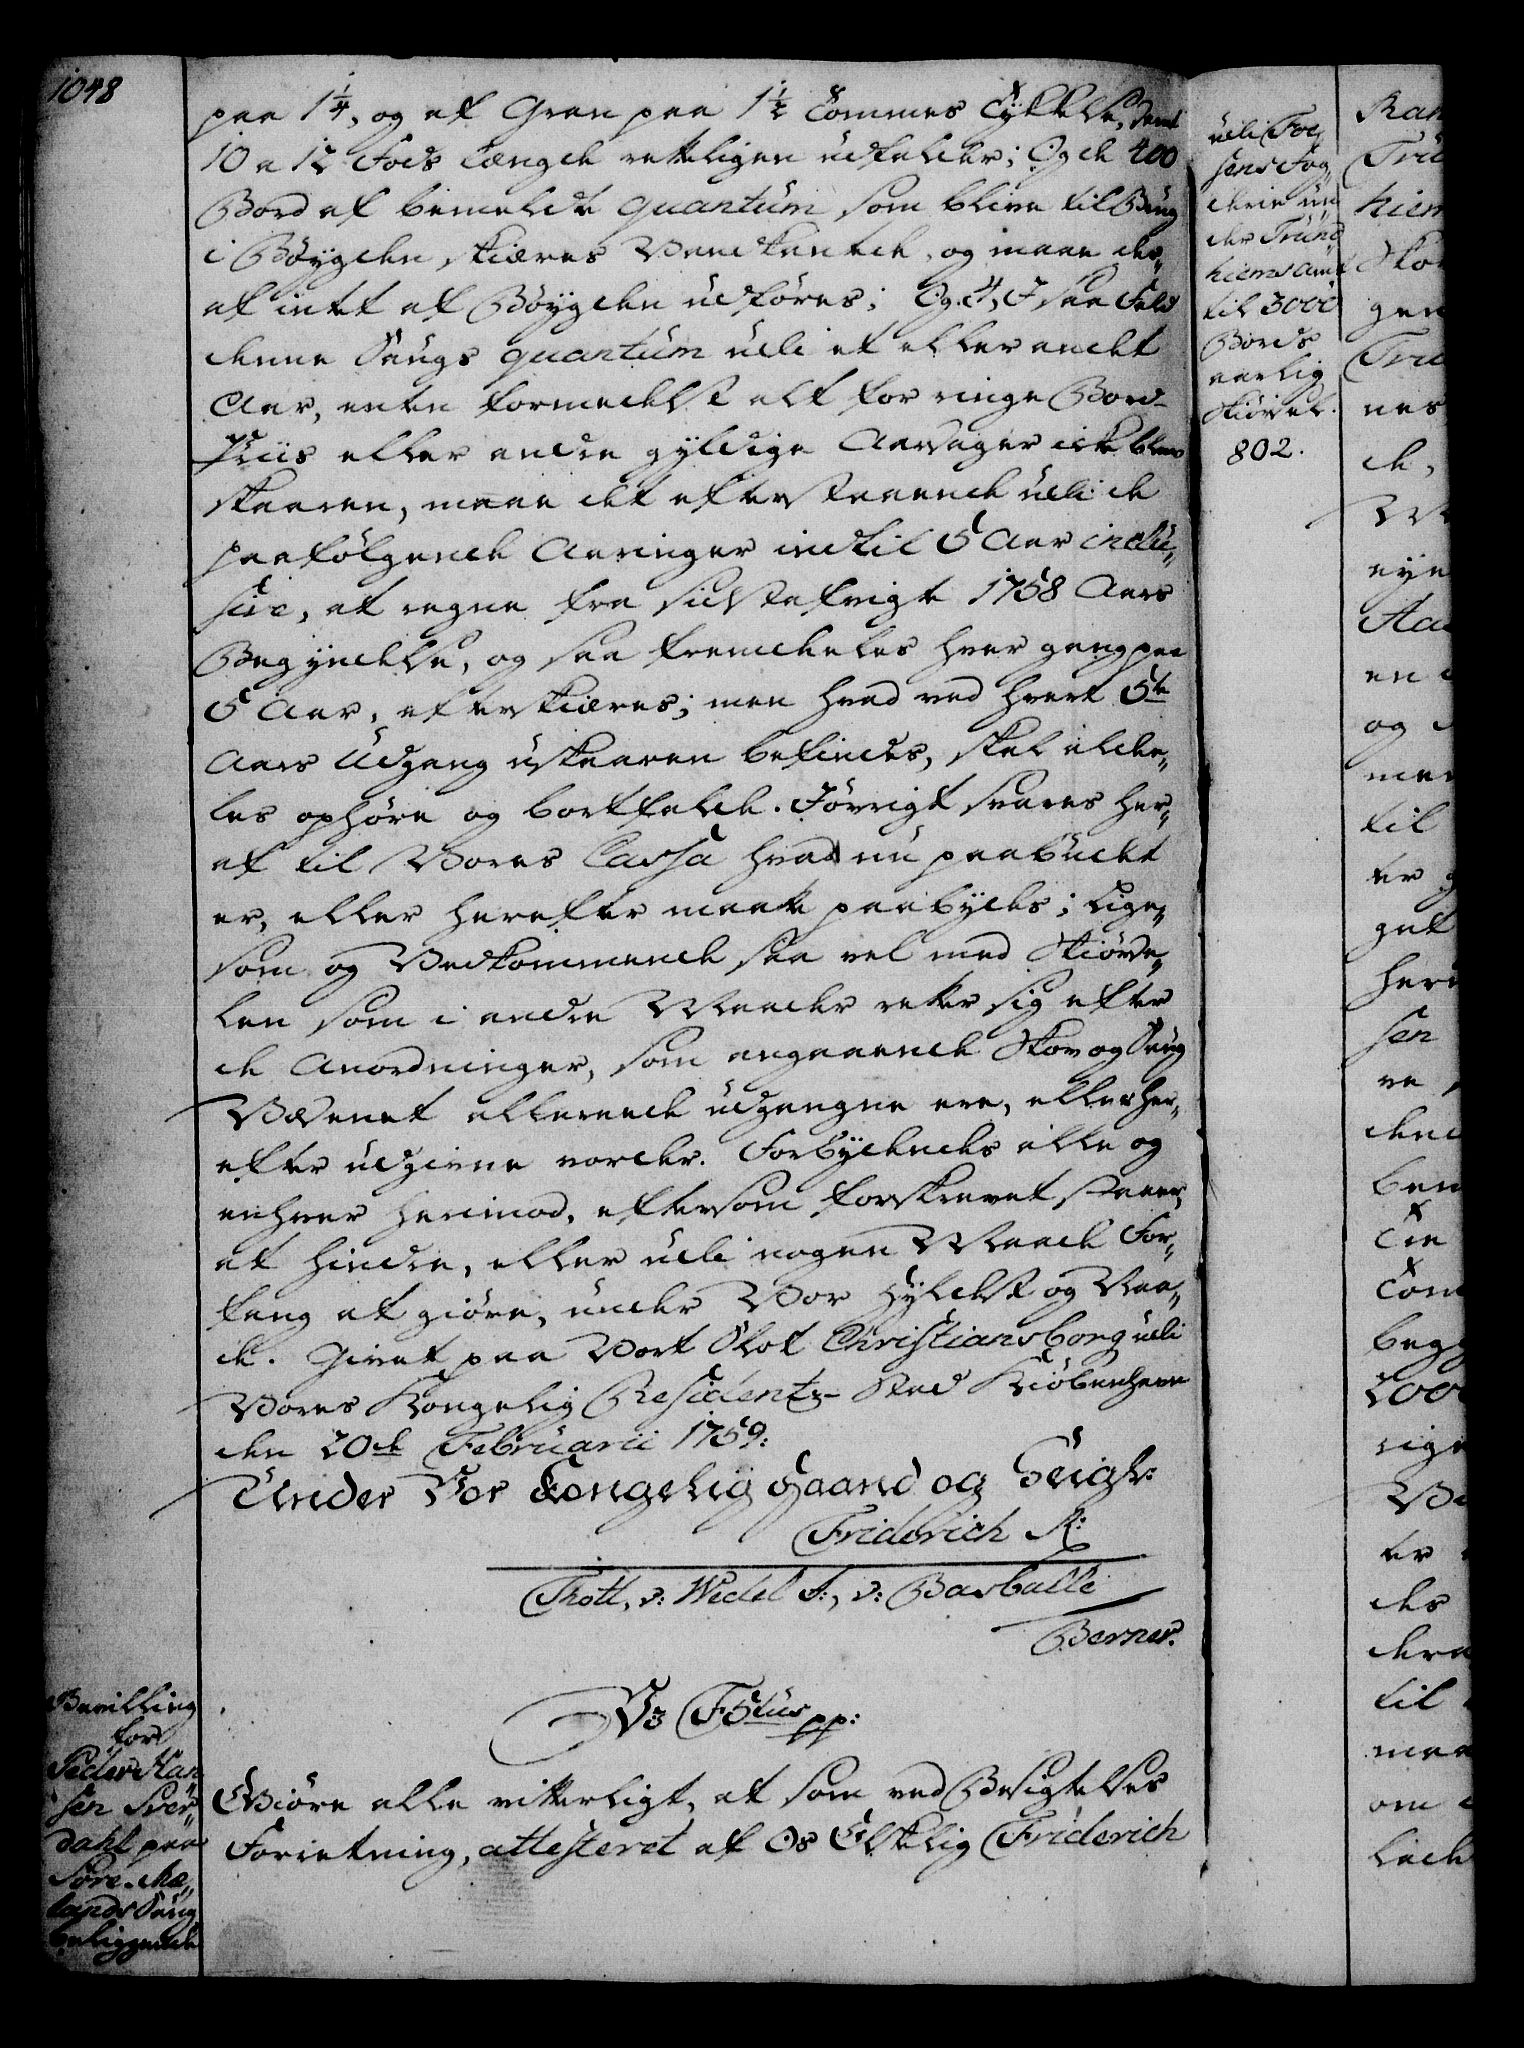 1048
paa 1 1/4, og af Gran paa 1 1/2 Tommes Tykkelse, samt
10 a 12 Fods Længde retteligen udfalder; Og de 400
Bord af bemeldte quantum som blive til Brug
i Bøygden skiæres Vandkantede, og maae der„
af intet af Bøygden udføres; Og 4, I saa Fald
denne Saugs quantum udi et eller andet
Aar, enten formedelst alt for ringe Bord-
Priis eller andre gyldige Aarsager icke blev
skaaren, maae det efterstaaende udi de
paafølgende Aaringer indtil 5 Aar inclu„
sive, at regne fra sidstafvigte 1758 Aars
Begyndelse, og saa fremdeles hver gang paa
5 Aar, efterskiæres; men hvad ved hvert 5te
Aars Udgang uskaaren befindes, skal aldee„
les ophøre og bortfalde. Iøvrigt svares her„
af til Vores Cassa hvad nu paabudet
er, eller herefter maatte paabydes; lige„
som og Vedkommende saa vel med Skiørse„
len som i andre Maader retter sig efter
de Anordninger, som angaaende Skov og Saug
Væsenet allerede udgangne ere, eller her„
efter udgivne vorder. Forbydendes alle og
enhver herimod, eftersom forskrevet staaer,
at hindre, eller udi nogen Maade For„
fang at giøre, under Vor Hyldest og Naa„
de. Givet paa Vort Slot Christiansborg udi
Vores Kongelig Residentz-Stad Kiøbenhavn
den 20de Februarii 1759:
Under Vor Kongelig Haand og Seigl:
Friderich R:
Thott, v: Wedel F:, v: Barballe
Berner.
Vi F 5tus pp:
Bevilling
for
Peder Han„
sen Sver„
dahl paa
Søre-Mæ„
lands Saug
beliggende
Giøre alle vitterligt, at som ved Besigtelses
Forretning, attesteret af Os Elskelig Friderich
udi Fos„
sens Fog„
derie un„
der Trund„
hiems Amt
til 3000
Bords
aarlig
Skiørsel.
802.